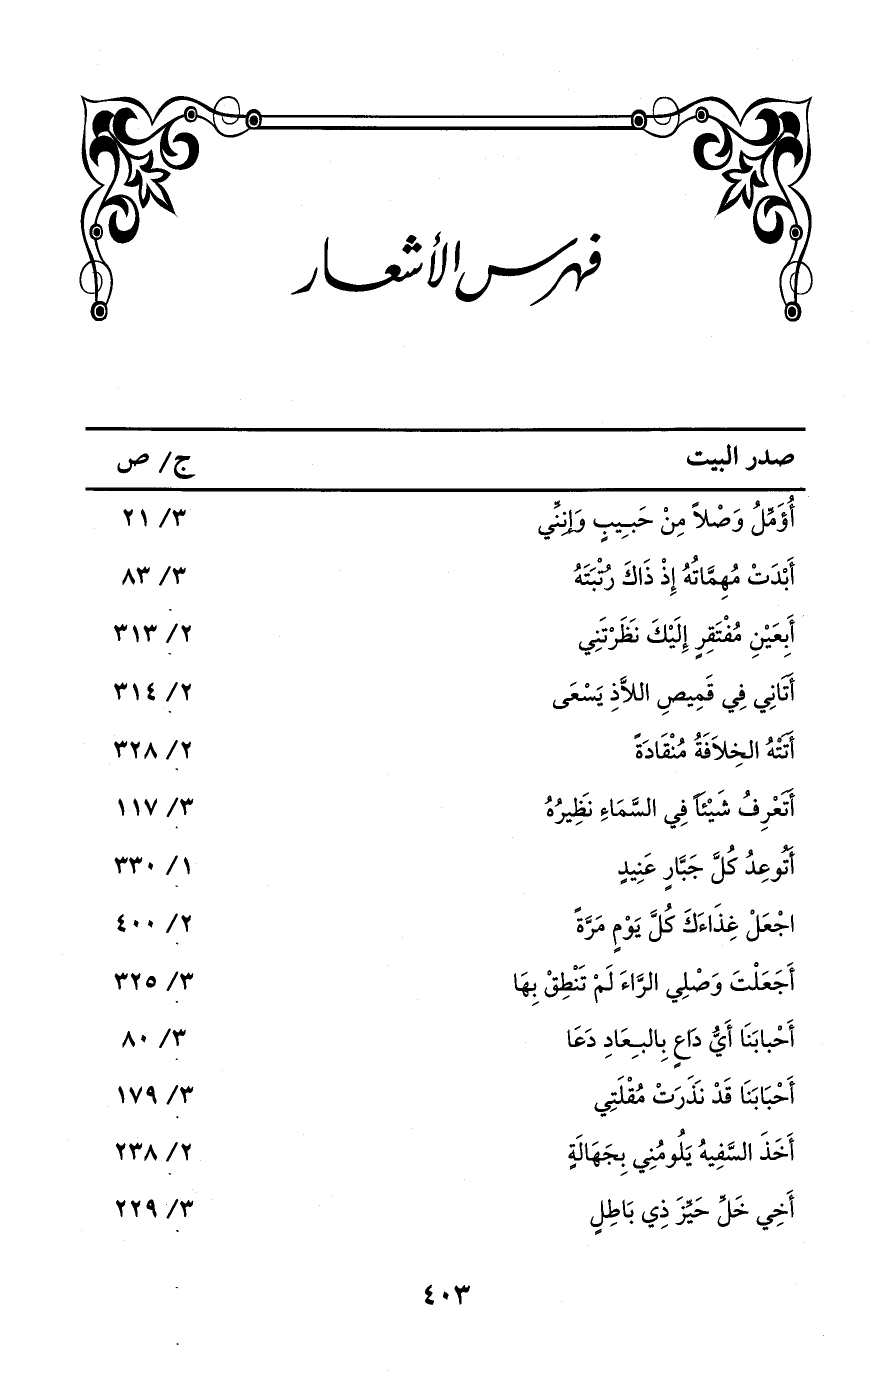 فهرس الأشعار
صدر البيت ج/ ص
أُؤَمِّلُ وَصْلاً مِنْ حَبِيبٍ وَإِنَّنِي ٣/ ٢١
أَبْدَتْ مُهِمَّاتُهُ إِذْ ذَاكَ رُتْبَتَهُ ٣/ ٨٣
أَبِعَيْنِ مُفْتَقِرٍ إِلَيْكَ نَظَرْتَنِي ٢/ ٣١٣
أَتَانِي فِي قَمِيصِ اللاَّذِ يَسْعَى ٢/ ٣١٤
أَتَتْهُ الخِلاَفَةُ مُنْقَادَةً ٢/ ٣٢٨
أَتَعْرِفُ شَيْئاً فِي السَّمَاءِ نَظِيرُهُ ٣/ ١١٧
أَتُوعِدُ كُلَّ جَبَّارٍ عَنِيدٍ ١/ ٣٣٠
اجْعَلْ غِذَاءَكَ كُلَّ يَوْمٍ مَرَّةً ٢/ ٤٠٠
أَجَعَلْتَ وَصْلِي الرَّاءَ لَمْ تَنْطِقْ بِهَا ٣/ ٣٢٥
أَحْبابَنَا أَيُّ دَاعٍ بِالبِعَادِ دَعَا ٣/ ٨٠
أَحْبَابَنَا قَدْ نَذَرَتْ مُقْلَتِي ٣/ ١٧٩
أَخَذَ السَّفِيهُ يَلُومُنِي بِجَهَالَةٍ ٢/ ٢٣٨
أَخِي خَلِّ حَيِّزَ ذِي بَاطِلٍ ٣/ ٢٢٩
٤٠٣